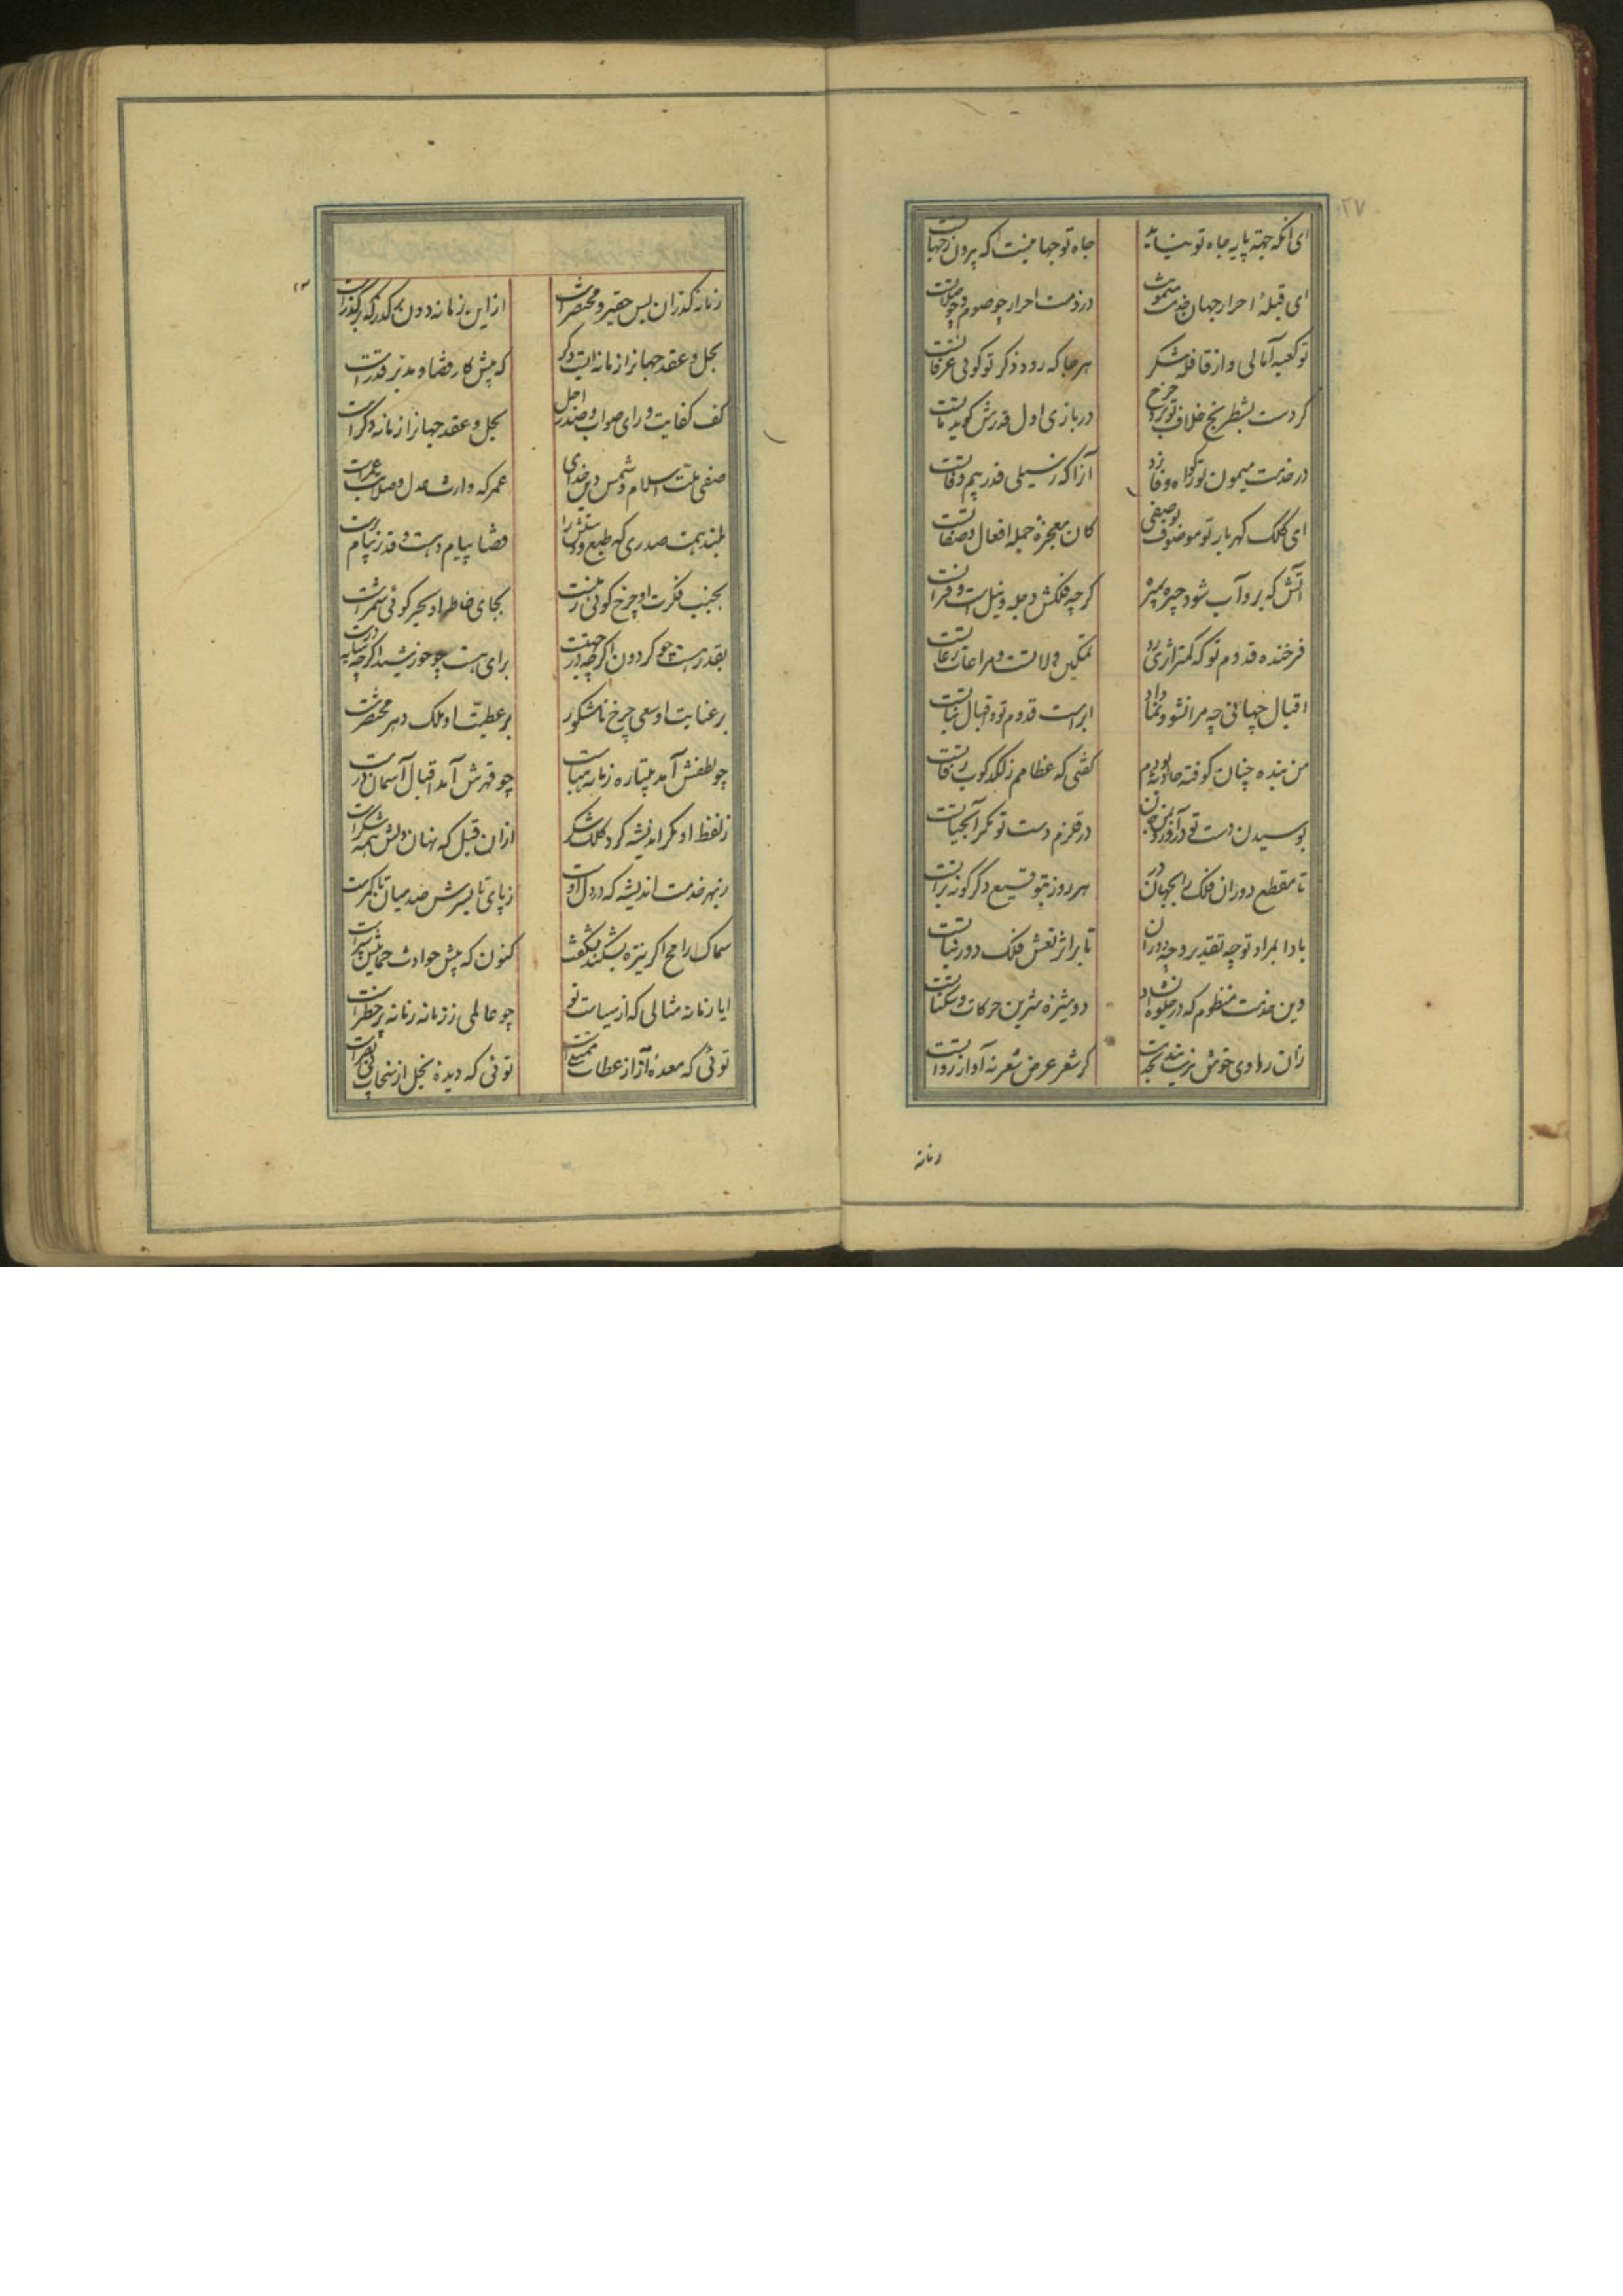 ۲۷
ای آنکه جهة پایه جاه تو نیابد جاه تو جهانیست که بیرون ز جهاتست
ای قبلهٔ احرار جهان خدمت میمونت در ذمت احرار چو صوم و چو صلوتست
تو کعبه آمالی و از قافله شکر هر جا که رود ذکر تو گوئی عرفاتست
کردست بشطرنج خلاف تو چرخ در بازی اول قدرش گوید ماتست
در خدمت میمون تو گو راه وفا رو آنرا که ز سیلی قدر بیم وفاتست
ای کلک گهربار تو موصوف بوصفی کان معجزهٔ جمله افعال و صفاتست
آتش که برو آب شود چیره بمیرد گرچه فلکش دجله و نیلست و فراتست
فرخنده قدوم تو که کمتر اثری زو تمکین ولاتست و مراعات رعاتست
اقبال جهانی چه مرا نشو و نما داد ابراست قدوم تو و اقبال نباتست
من بنده چنان کوفته حادثه بودم گفتی که عظامم ز لگدکوب رفاتست
بوسیدن دست تو درآورد بمن جان در قلزم دست تو مگر آبحیاتست
تا مقطع دوران فلک را بجهان در هر روز بتوقیع دگرگونه براتست
بادا بمراد تو چه تقدیر و چه دوران تا بر اثر نعش فلک دور بناتست
وین خدمت منظوم که در جلوه انشاد دوشیزه شیرین حرکات و سکناتست
زان راوی خوش خوان نرسیدست بخدمت کز شعر عرض شعر نه آواز رواتست
زمانه
زمانه گذران بس حقیر و مختصر است ازین زمانه دون بر گذر که بر گذراست
بحل و عقد جهانرا زمانه ایست دگر که پیش کار قضا و مدبر قدرست
کف کفایت و رای صواب صدر اجل بحل و عقد جهانرا زمانه دگر است
صفی ملت اسلام و شمس دین خدای عمر که وارث عدل و صلابت عمرست
بلند همت صدری که طبع و دستش را قضا پیام دهست و قدر پیام برست
بجنب فکرت او چرخ گوئی زمنست بجای خاطر او بحر گوئی شمرست
بقدر هست چو گردون اگرچه در جهتست برای هست چو خورشید اگرچه سایه ورست
بر عنایت او سعی چرخ نامشکور بر عطیت او ملک دهر مختصرست
چو لطفش آمد پتیاره زمانه هباست چو قهرش آمد اقبال آسمان درست
ز لفظ او مگر اندیشه کرد کلک شکر ازان قبل که نهان دلش همه شکرست
ز بهر خدمت اندیشه که در دل اوست ز پای تا بسرش صد میان با کمرست
سماک رامح اگر نیزه بشکند چه شگفت کنون که پیش حوادث حمایتش سپرست
ایا زمانه مثالی که از سیاست تو چو عالمی ز زمانه زمانه پر خطرست
توئی که معدهٔ آز از عطات ممتلیست توئی که دیده بخل از سخات بی بصرست